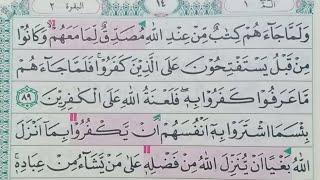 الٓمّٓ ١ ١٤ البقرة ٢
وَلَمَّا جَآءَهُمْ كِتٰبٌ مِّنْ عِنْدِ اللّٰهِ مُصَدِّقٌ لِّمَا مَعَهُمْ ۙ وَكَانُوْا
مِنْ قَبْلُ يَسْتَفْتِحُوْنَ عَلَى الَّذِيْنَ كَفَرُوْا ۚ فَلَمَّا جَآءَهُمْ
مَّا عَرَفُوْا كَفَرُوْا بِهٖ ۫ فَلَعْنَةُ اللّٰهِ عَلَى الْكٰفِرِيْنَ ٨٩
بِئْسَمَا اشْتَرَوْا بِهٖٓ اَنْفُسَهُمْ اَنْ يَّكْفُرُوْا بِمَآ اَنْزَلَ
اللّٰهُ بَغْيًا اَنْ يُّنَزِّلَ اللّٰهُ مِنْ فَضْلِهٖ عَلٰى مَنْ يَّشَآءُ مِنْ عِبَادِهٖ ۚ